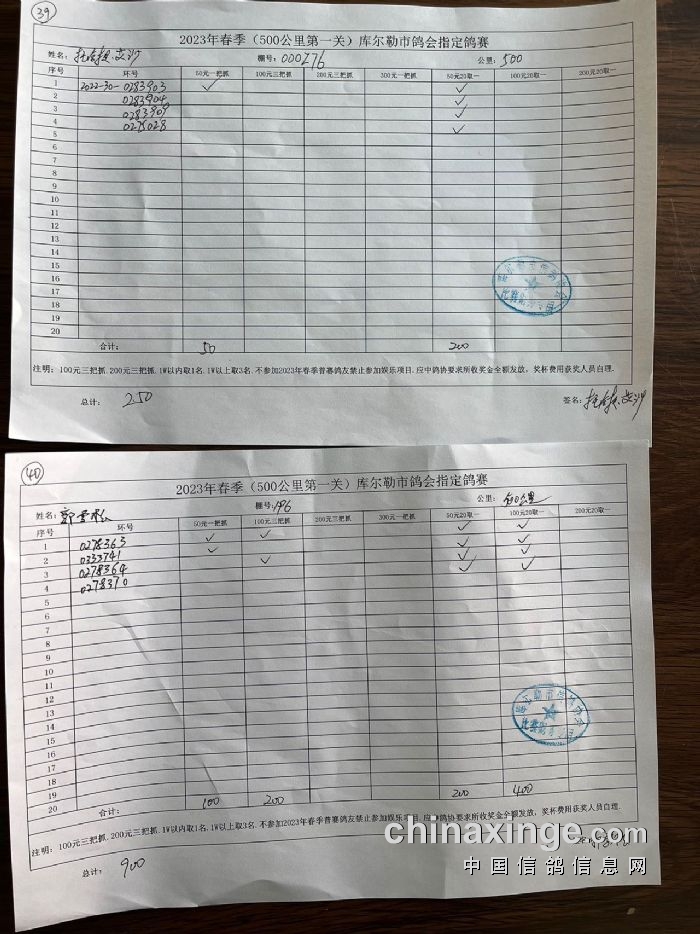 39
2023年春季（500公里第一关）库尔勒市鸽会指定鸽赛
姓名： 棚号：000276 公里：500
序号 环号 50元一把抓 100元三把抓 200元三把抓 300元一把抓 50元20取一 100元20取一 200元20取一
1 2022-30-0283903 ✓ ✓
2 0283904 ✓
3 0283909 ✓
4 0275028 ✓
5
6
7
8
9
10
11
12
13
14
15
16
17
18
19
20
合计： 50 200
注明：100元三把抓.200元三把抓.1W以内取1名.1W以上取3名.不参加2023年春季普赛鸽友禁止参加娱乐项目.应中鸽协要求所收奖金全额发放，奖杯费用获奖人员自理.
总计： 250 签名：
40
2023年春季（500公里第一关）库尔勒市鸽会指定鸽赛
姓名： 棚号：196 公里：500公里
序号 环号 50元一把抓 100元三把抓 200元三把抓 300元一把抓 50元20取一 100元20取一 200元20取一
1 0278363 ✓ ✓ ✓ ✓
2 0333741 ✓ ✓ ✓
3 0278364 ✓ ✓ ✓
4 0278370 ✓ ✓
5
6
7
8
9
10
11
12
13
14
15
16
17
18
19
20
合计： 100 200 200 400
注明：100元三把抓.200元三把抓.1W以内取1名.1W以上取3名.不参加2023年春季普赛鸽友禁止参加娱乐项目.应中鸽协要求所收奖金全额发放，奖杯费用获奖人员自理.
总计： 900
chinaxinge.com
中国信鸽信息网